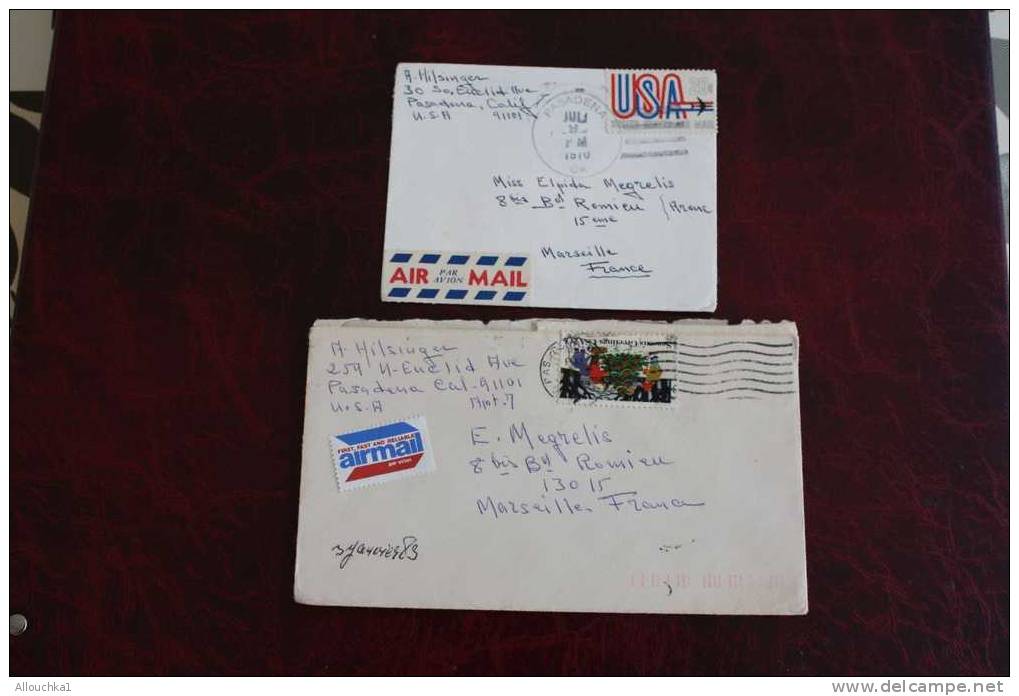 A. Hilsinger
30 So. Euclid Ave
Pasadena, Calif
U.S.A 91101
USA
PASADENA
JUL
1970
Miss Elpida Megrelis
8 bis Bd Romieu
15 eme
Marseille
France
AIR PAR AVION MAIL
A. Hilsinger
259 N-Euclid Ave
Pasadena Cal-91101
U.S.A Apt-7
Season's Greetings USA
FIRST, FAST AND RELIABLE
airmail
par avion
E. Megrelis
8 bis Bd Romieu
13015
Marseilles France
3 Janvier 83
Allouchka1
www.delcampe.net